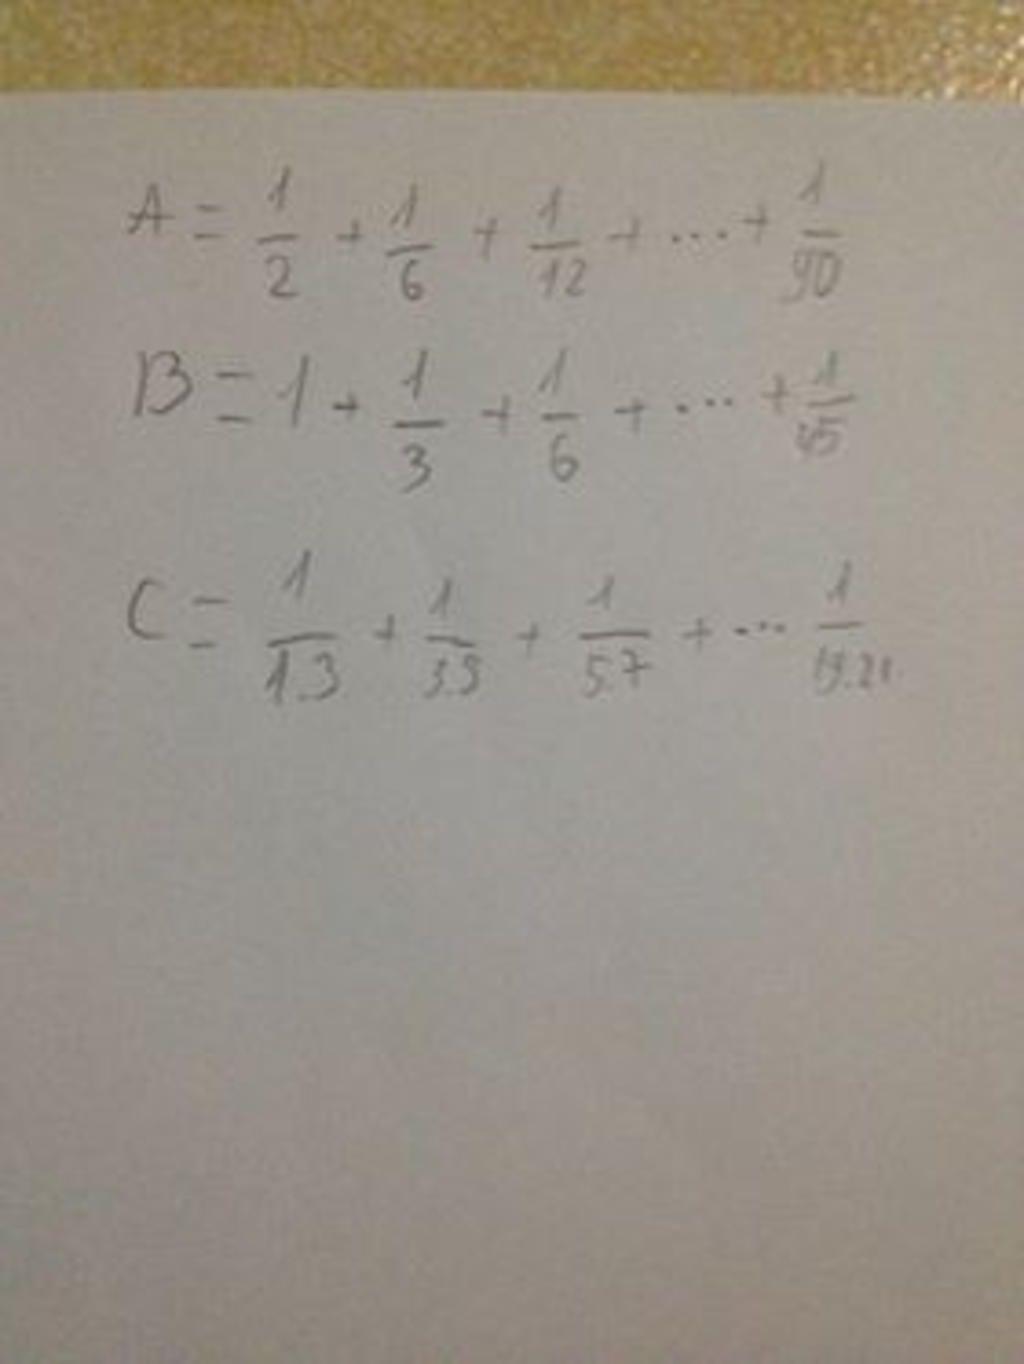 A = 1/2 + 1/6 + 1/12 + ... + 1/90
B = 1 + 1/3 + 1/6 + ... + 1/45
C = 1/1.3 + 1/3.5 + 1/5.7 + ... 1/19.21